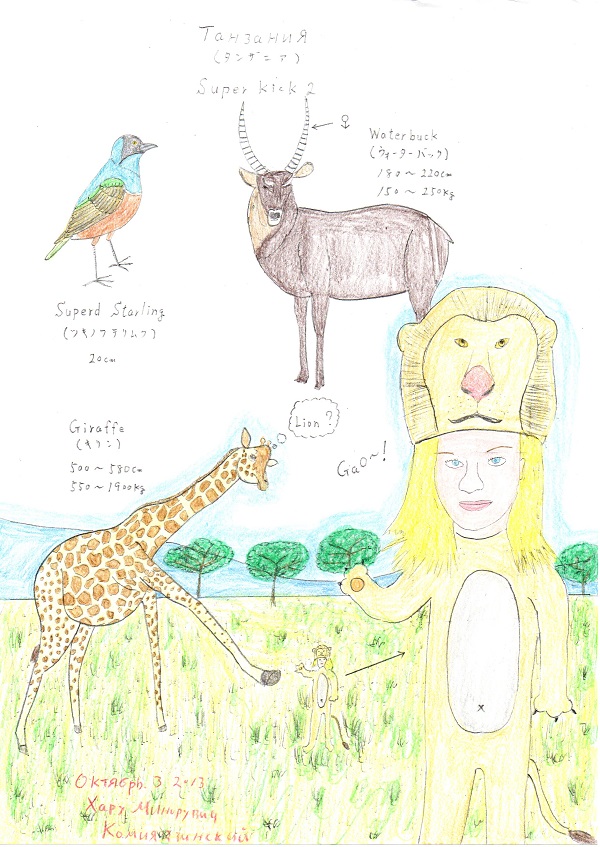 Танзания
(タンザニア)
Super kick 2
Waterbuck
(ウォーターバック)
180～220cm
150～250kg
Superd Starling
(ツキノワテリムク)
20cm
Giraffe
(キリン)
500～580cm
550～1900kg
Lion?
Gao~!
Октябрь. 3 2013